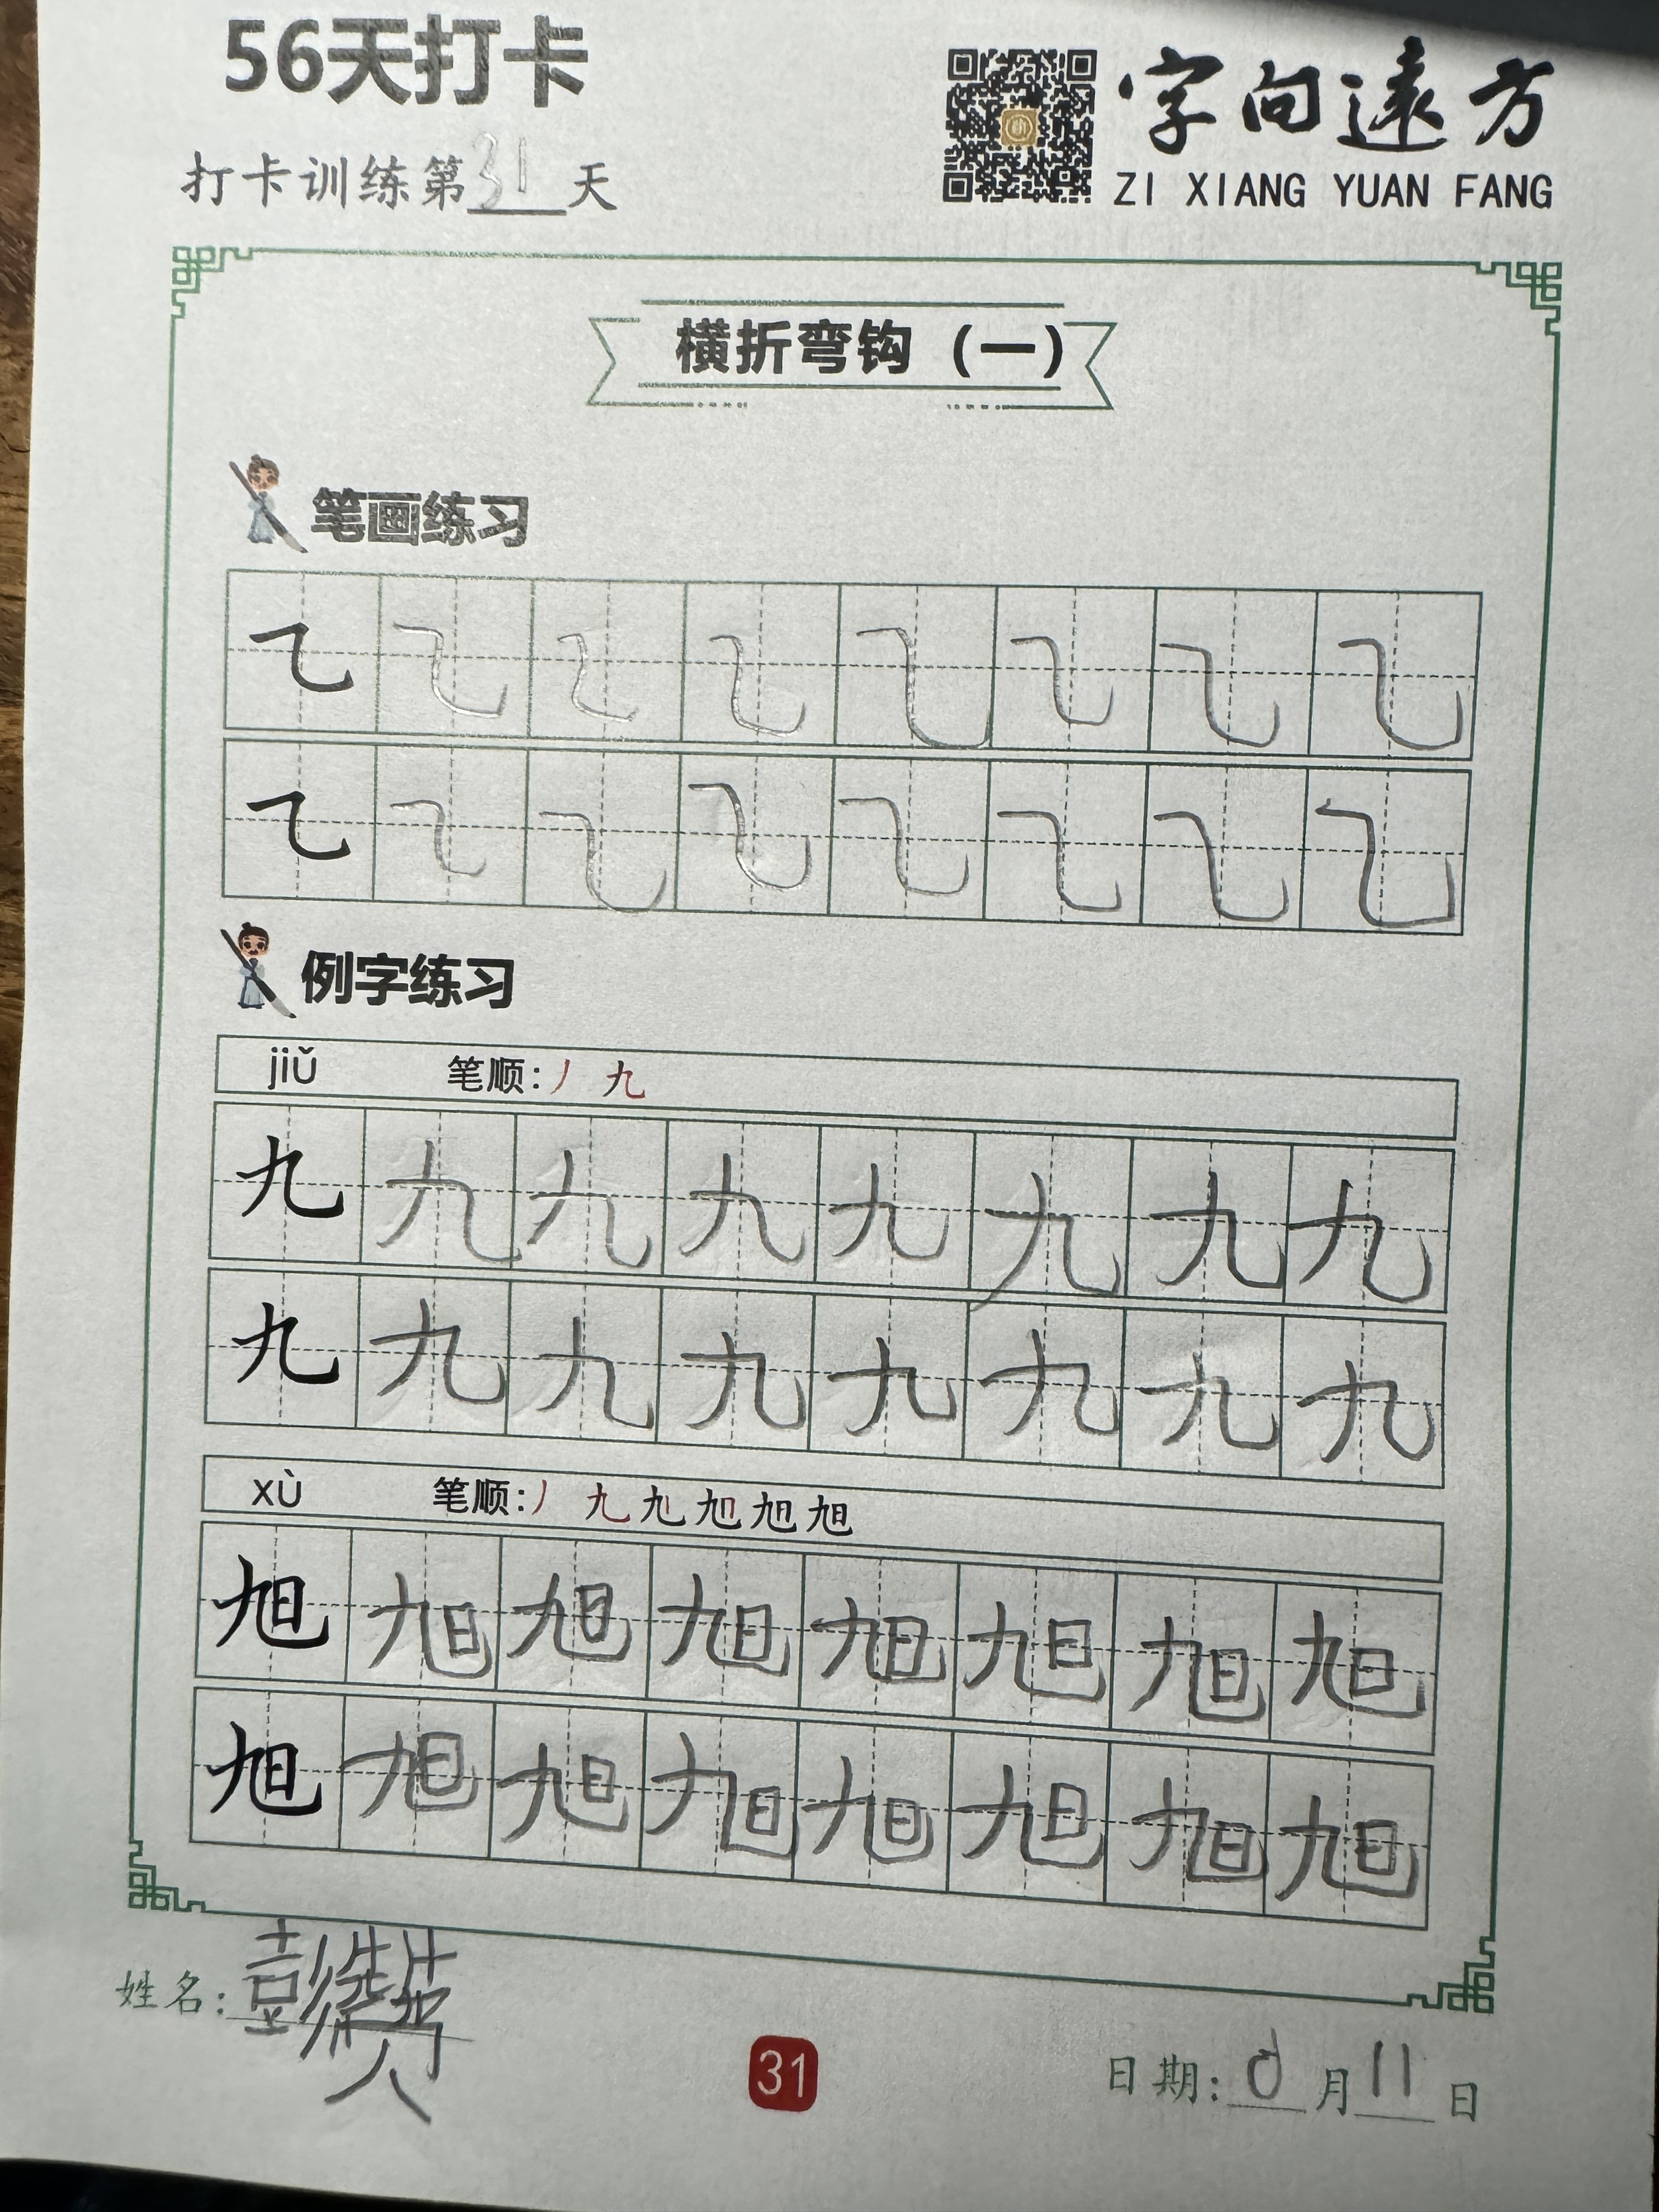 56天打卡
打卡训练第31天
字向遠方
ZI XIANG YUAN FANG
横折弯钩（一）
笔画练习
㇈ ㇈ ㇈ ㇈ ㇈ ㇈ ㇈ ㇈
㇈ ㇈ ㇈ ㇈ ㇈ ㇈ ㇈ ㇈
例字练习
jiǔ 笔顺：丿 九
九 九 九 九 九 九 九 九
九 九 九 九 九 九 九 九
xù 笔顺：丿 九
旭 旭 旭 旭 旭 旭 旭 旭
旭 旭 旭 旭 旭 旭 旭 旭
姓名：彭
31
日期：6月11日